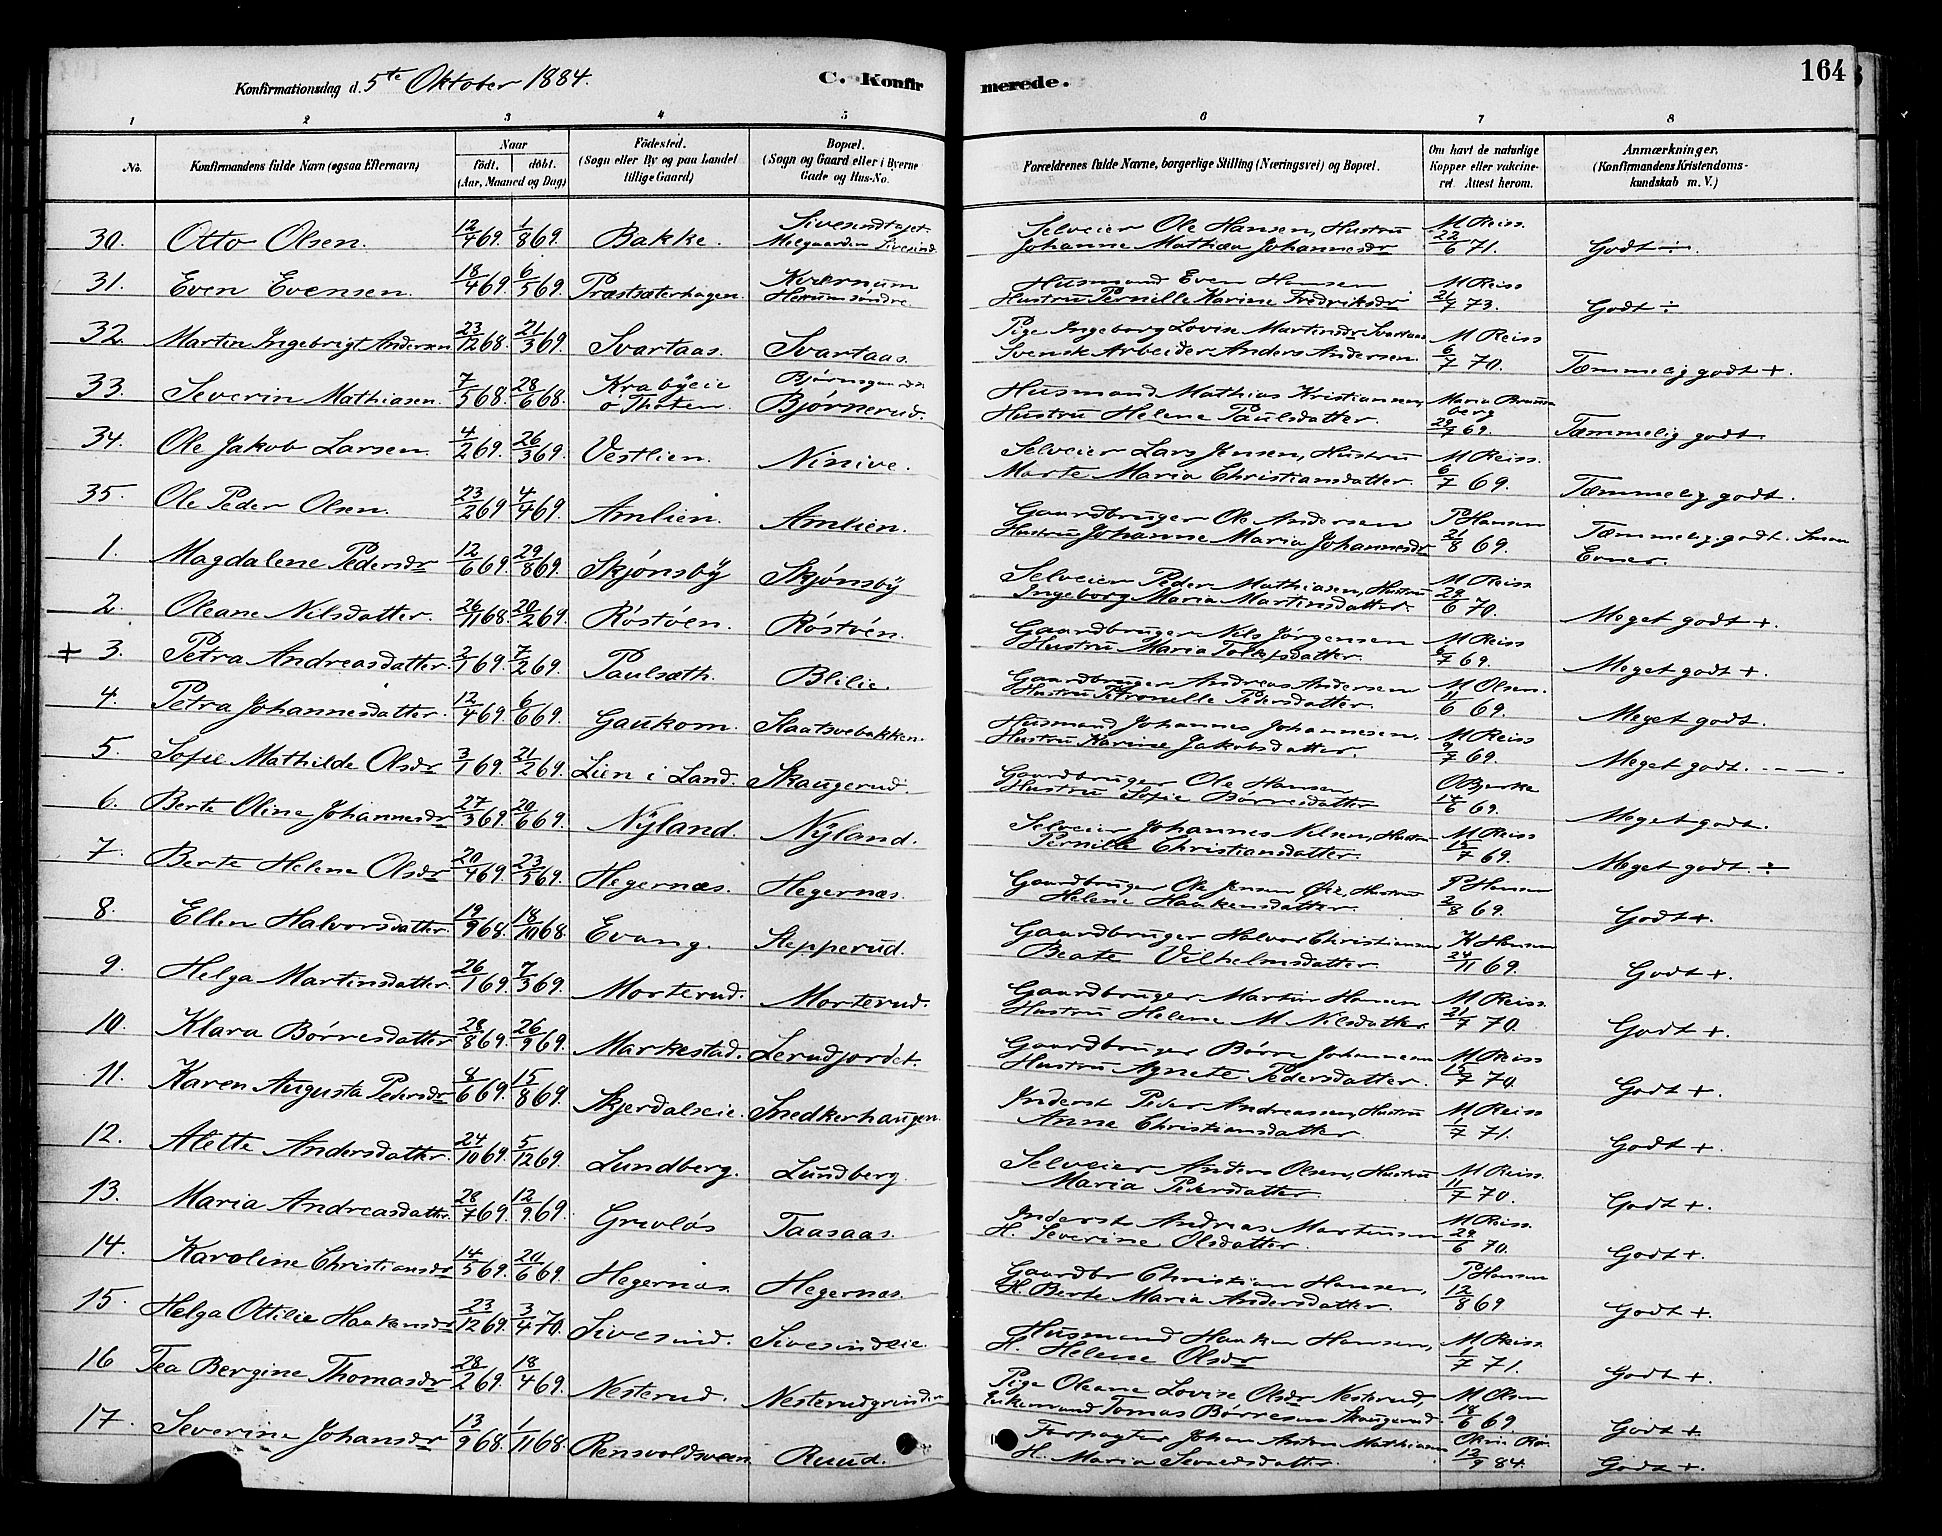 Konfirmationsdag d. 5te Oktober 1884.
C. Konfir
merede.
164
1 2 3 4 5 6 7 8
No. Konfirmandens fulde Navn (ogsaa Efternavn) Naar födt. döbt. (Aar, Maaned og Dag) Födested. (Sogn eller By og paa Landet tillige Gaard.) Bopæl. (Sogn og Gaard eller i Byerne Gade og Hus-No. Forældrenes fulde Navne, borgerlige Stilling (Næringsvei) og Bopæl. Om havt de naturlige Kopper eller vakcineret. Attest herom. Anmærkninger, (Konfirmandens Kristendomskundskab m. V.)
30. Otto Olsen. 12/4 69. 1/8 69. Bakke. Selveier Ole Hansen, Hustru Johanne Mathea Johannesdr M Reiss 22/6 71. Godt ÷.
31. Even Evensen. 18/4 69. 6/5 69. Præstsæterhagen. Kværnum Husmand Even Hansen Hustru Pernille Karine Fredriksdr M Reiss 21/7 73. Godt ÷
32. Martin Ingebrigt Andersen 23/12 68. 21/3 69. Svartaas. Svartaas. Pige Ingeborg Lovise Martinsdr Svartaas Svensk Arbeider Anders Andersen. M Reiss 6/7 70. Tæmmelig godt +.
33. Severin Mathiasen. 7/5 68. 28/6 68. Krabyeie ø Thoten. Bjørnerud. Husmand Mathias Kristiansen, Hustru Helene Paulsdatter. 29/7 69. Tæmmelig godt
34. Ole Jakob Larsen. 4/2 69. 26/3 69. Vestlien. Ninive. Selveier Lars Jensen, Hustru Marte Maria Christiansdatter. M Reiss. 6/7 69. Tæmmelig godt.
35. Ole Peder Olsen. 23/2 69 4/4 69. Amlien. Amlien. Gaardbruger Ole Andersen Hustru Johanne Maria Johannesdr P Hansen 21/8 69. Tæmmelig godt. Evner.
1. Magdalene Pedersdr 12/6 69. 29/8 69. Skjønsby Skjønsby Selveier Peder Mathiasen, Hustru Ingeborg Maria Martinsdatter. M Reiss. 29/6 70. Meget godt +.
2. Oleane Nilsdatter. 26/11 68. 20/2 69. Röstöen. Röstöen. Gaardbruger Nils Jørgensen Hustru Maria Tollefsdatter. M Reiss 6/7 69. Meget godt +
+ 3. Petra Andreasdatter. 2/1 69. 7/2 69. Paulsæth. Blilie. Gaardbruger Andreas Andersen Hustru Petronelle Pedersdatter. M Olsen. 11/6 69. Meget godt.
4. Petra Johannesdatter. 12/4 69. 6/6 69. Gaukom. Staatsvebakken. Husmand Johannes Johannesen. Hustru Karine Jakobsdatter. M Reiss 9/7 69. Meget godt.
5. Sofie Mathilde Olsdr 3/1 69. 21/2 69. Lien i Land. Skaugerud. Gaardbruger Ole Hansen Hustru Sofie Børresdatter O Bjerke 14/6 69. Meget godt.
6. Berte Oline Johannesdr 27/3 69. 20/6 69. Nyland. Nyland. Selveier Johannes Nilsen, Hustru Pernille Christiansdatter. M Reiss 15/7 69. Meget godt. ÷
7. Berte Helene Olsdr 20/4 69. 23/5 69. Hegernæs. Hegernæs. Gaardbruger Ole Jensen Hustru Helene Haakensdatter. P Hansen 2/8 69. Godt +.
8. Ellen Halvorsdatter 19/9 68. 18/10 68. Evang. Stepperud. Gaardbruger Halvor Christiansen Beate Vilhelmsdatter. K Hansen 24/11 69. Godt +.
9. Helga Martinsdatter. 26/1 69. 7/3 69. Morterud. Morterud. Gaardbruger Martin Hansen Hustru Helene M Nilsdatter. M Reiss. 21/7 70. Godt +.
10. Klara Børresdatter 28/8 69. 26/9 69. Markestad. Lerudjordet. Gaardbruger Børre Johannesen Hustru Agnete Pedersdatter. M Reiss 15/7 70. Godt +.
11. Karen Augusta Pedersdr 8/6 69. 15/8 69. Skjerdalseie. Snedkerhaugen. Inderst Peder Andreassen, Hustru Anne Christiansdatter. M Reiss 1/7 71. Godt +
12. Alette Andersdatter. 24/10 69. 5/12 69. Lundberg. Lundberg. Selveier Anders Olsen, Hustru Maria Pedersdatter. M Reiss. 11/7 70. Godt +.
13. Maria Andreasdatter. 28/7 69. 12/9 69. Grevløs Taasaas. Inderst Andreas Martinsen H. Severine Olsdatter. M Reiss. 29/6 70. Godt +.
14. Karoline Christiansdr 14/5 69. 20/6 69. Hegernæs. Hegernæs. Gaardbr Christian Hansen, H. Berte Maria Andersdatter. P Hansen 12/8 69 Godt +.
15. Helga Ottilie Haakensdr 23/12 69. 3/4 70. Sivesind. Sivesindeie. Husmand Haaken Hansen, H. Helene Olsdr M Reiss. 1/7 71. Godt +.
16 Tea Bergine Thomasdr 28/2 69. 18/4 69. Nesterud. Pige Oleane Lovise Olsdr Nesterud, Enkemand Tomas Børresen Skaugerud. M Olsen 18/6 69. Godt +
17. Severine Johansdr 13/9 68. 1/11 68. Rensvoldsveen Ruud. Forpagter Johan Anton Mathiesen H. Maria Sevaldsdatter. 12/9 84. Godt +.